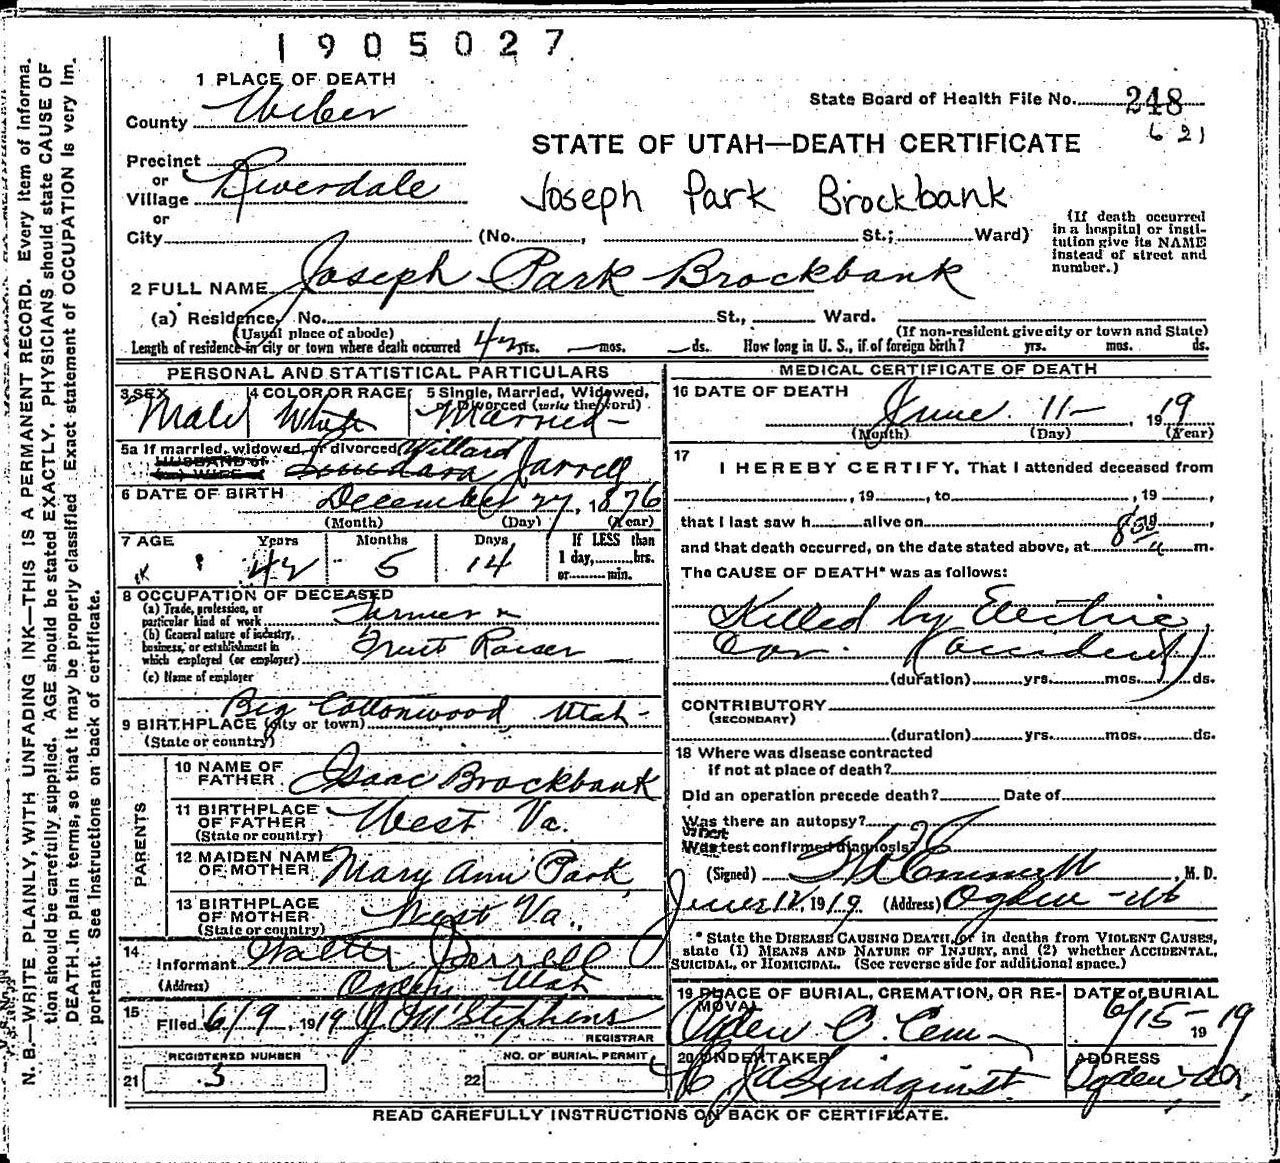 1905027
1 PLACE OF DEATH
County Weber
State Board of Health File No. 248
621
STATE OF UTAH—DEATH CERTIFICATE
Precinct
or
Village Riverdale
or
Joseph Park Brockbank
City (No. , St.; Ward)
(If death occurred in a hospital or institution give its NAME instead of street and number.)
2 FULL NAME Joseph Park Brockbank
(a) Residence. No. St., Ward.
(Usual place of abode) (If non-resident give city or town and State)
Length of residence in city or town where death occurred 42 yrs. — mos. — ds. How long in U. S., if of foreign birth? yrs. mos. ds.
PERSONAL AND STATISTICAL PARTICULARS
3 SEX Male
4 COLOR OR RACE White
5 Single, Married, Widowed, or Divorced (write the word) Married
5a If married, widowed, or divorced Willard
HUSBAND of
(or) WIFE of Jarrell
6 DATE OF BIRTH December 27, 1876
(Month) (Day) (Year)
7 AGE Years Months Days If LESS than
42 5 14 1 day, hrs.
or min.
8 OCCUPATION OF DECEASED
(a) Trade, profession, or
particular kind of work Farmer
(b) General nature of industry,
business, or establishment in
which employed (or employer) Fruit Raiser
(c) Name of employer
9 BIRTHPLACE (city or town) Big Cottonwood Utah
(State or country)
PARENTS
10 NAME OF FATHER Isaac Brockbank
11 BIRTHPLACE OF FATHER West Va.
(State or country)
12 MAIDEN NAME OF MOTHER Mary Ann Park
13 BIRTHPLACE OF MOTHER West Va.
(State or country)
14 Informant Walter Jarrell
(Address) Ogden Utah
15 Filed 6/9, 1919 J M Stephens
REGISTRAR
REGISTERED NUMBER
21 3
NO. OF BURIAL PERMIT
22
MEDICAL CERTIFICATE OF DEATH
16 DATE OF DEATH June 11— , 1919
(Month) (Day) (Year)
17 I HEREBY CERTIFY, That I attended deceased from
, 19 , to , 19 ,
that I last saw h alive on ,
and that death occurred, on the date stated above, at 8 50 a m.
The CAUSE OF DEATH* was as follows:
Killed by Electric
Car. (accident)
(duration) yrs. mos. ds.
CONTRIBUTORY
(SECONDARY)
(duration) yrs. mos. ds.
18 Where was disease contracted
if not at place of death?
Did an operation precede death? Date of
Was there an autopsy?
What test confirmed diagnosis?
(Signed) , M. D.
June 12, 1919 (Address) Ogden Ut
* State the DISEASE CAUSING DEATH, or in deaths from VIOLENT CAUSES,
state (1) MEANS AND NATURE OF INJURY, and (2) whether ACCIDENTAL,
SUICIDAL, or HOMICIDAL. (See reverse side for additional space.)
19 PLACE OF BURIAL, CREMATION, OR REMOVAL Ogden C. Cem
DATE of BURIAL 6/15-1919
20 UNDERTAKER Lindquist
ADDRESS Ogden
READ CAREFULLY INSTRUCTIONS ON BACK OF CERTIFICATE.
N. B.—WRITE PLAINLY, WITH UNFADING INK—THIS IS A PERMANENT RECORD. Every item of informa-
tion should be carefully supplied. AGE should be stated EXACTLY. PHYSICIANS should state CAUSE OF
DEATH in plain terms, so that it may be properly classified. Exact statement of OCCUPATION is very im-
portant. See instructions on back of certificate.